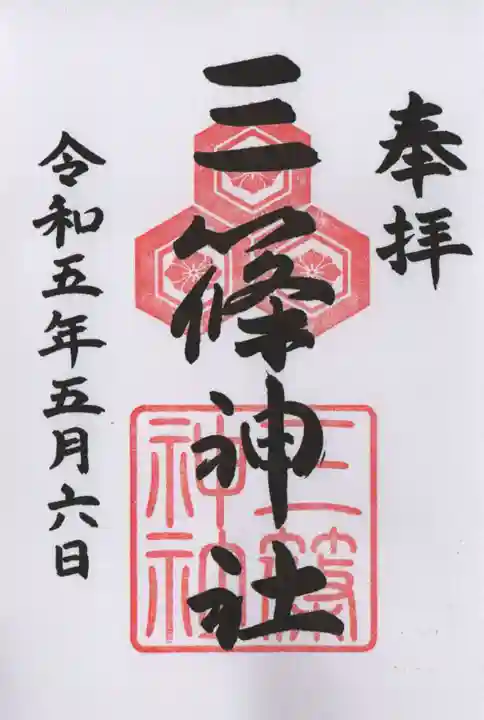 奉拝
三篠神社
令和五年五月六日
三篠神社